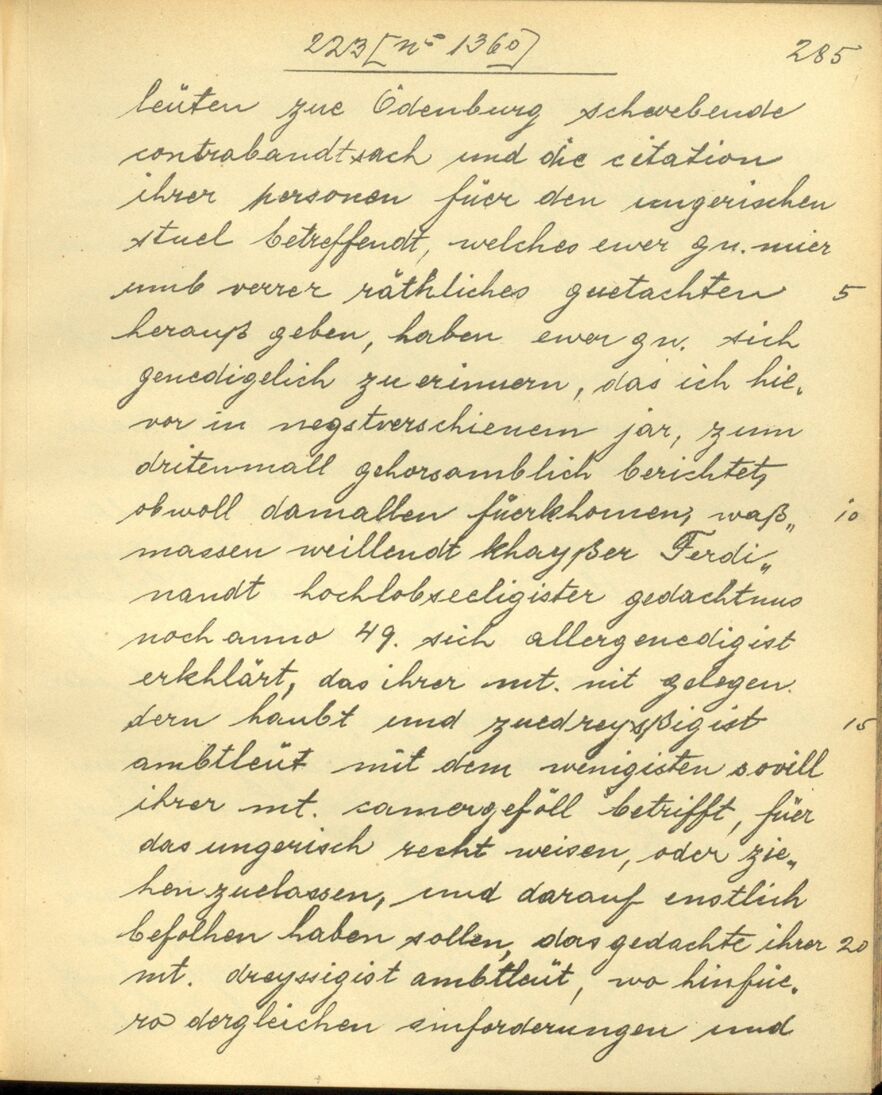 223 [nº 1360]
285
leüten zue Ödenburg schwebende
contrabandtsach und die citation
ihrer personen füer den ungerischen
stuel betreffendt, welches ewer gn. mier
umb verrer räthliches guetachten 5
herauß geben, haben ewer gn. sich
genedigelich zu erinnern, das ich hie„
vor in negstverschienem jar, zum
dritenmall gehorsamblich berichtet,
obwoll damallen füerkhomen, waß„ 10
massen weillendt khayßer Ferdi„
nandt hochlobseeligister gedachtnus
noch anno 49. sich allergenedigist
erkhlärt, das ihrer mt. nit gelegen.
dern haubt und zuedreysßigist 15
ambtleüt mit dem wenigisten sovill
ihrer mt. camergeföll betrifft, füer
das ungerisch recht weisen, oder zie„
hen zuelassen, und darauf enstlich
befolhen haben sollen, das gedachte ihrer 20
mt. dreyssigist ambtleüt, wo hinfüe„
ro dergleichen einforderungen und